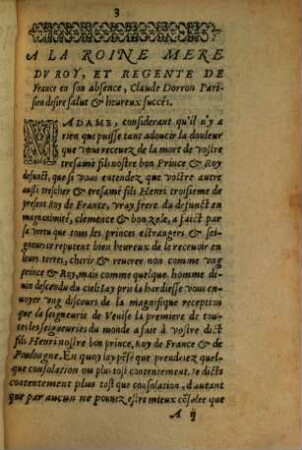 3
A LA ROINE MERE
DV ROY, ET REGENTE DE
France en son absence, Claude Dorron Pari-
sien desire salut & heureux succés.
MADAME, considerant qu'il n'y a
rien que puisse tant adoucir la douleur
que vous receuez de la mort de vostre
tresamé fils nostre bon Prince & Roy
defunct, que si vous entendez que vostre autre
aussi trescher & tresamé fils Henri troisieme de
present Roy de France, vray frere du defunct en
magnanimité, clemence & bon zele, a faict par
sa vertu que tous les princes estrangers & sei-
gneurs se reputent bien heureux de le recevoir en
leurs terres, cherir & recreer non comme vng
prince & Roy, mais comme quelque homme di-
uin descendu du ciel: i'ay pris la hardiesse vous en-
uoyer vng discours de la magnifique reception
que la seigneurie de Venise la premiere de tou-
tes les seigneuries du monde a faite à vostre dict
fils Henri nostre bon prince, roy de France & de
Poulongne. En quoy i'ay pésé que prendriez quel-
que consolation ou plus tost contentement. Ie dicts
contentement plus tost que consolation, d'autant
que par aucun ne pouuez estre mieux cósolee que
A ij